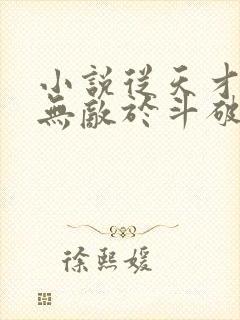 小說從天才
無敵於斗破
徐熙媛